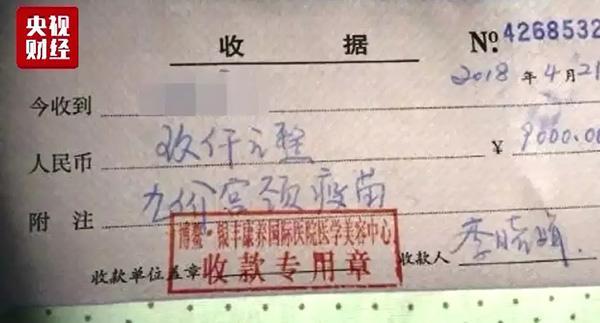 央视
财经
收 据 № 4268532
2018年4月21
今收到
人民币 玖仟元整 ¥ 9000.00
附 注 九价宫颈疫苗
博鳌·银丰康养国际医院医学美容中心
收款专用章
收款单位盖章 收款人 李晓